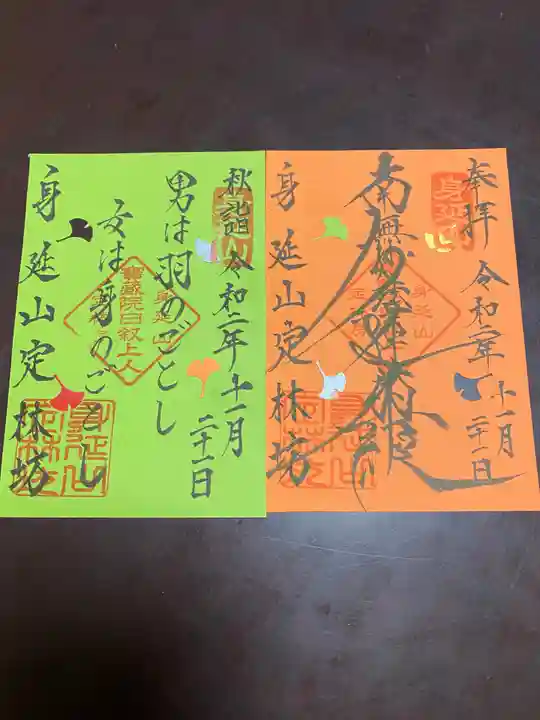 奉拝 令和二年十一月
二十一日
身延山
南無妙法蓮華経
身延山
身延山定林坊
秋詣 令和二年十一月
二十一日
男は羽のごとし
女は身のごとし
身延山
寶蔵院日叙上人
身延山定林坊